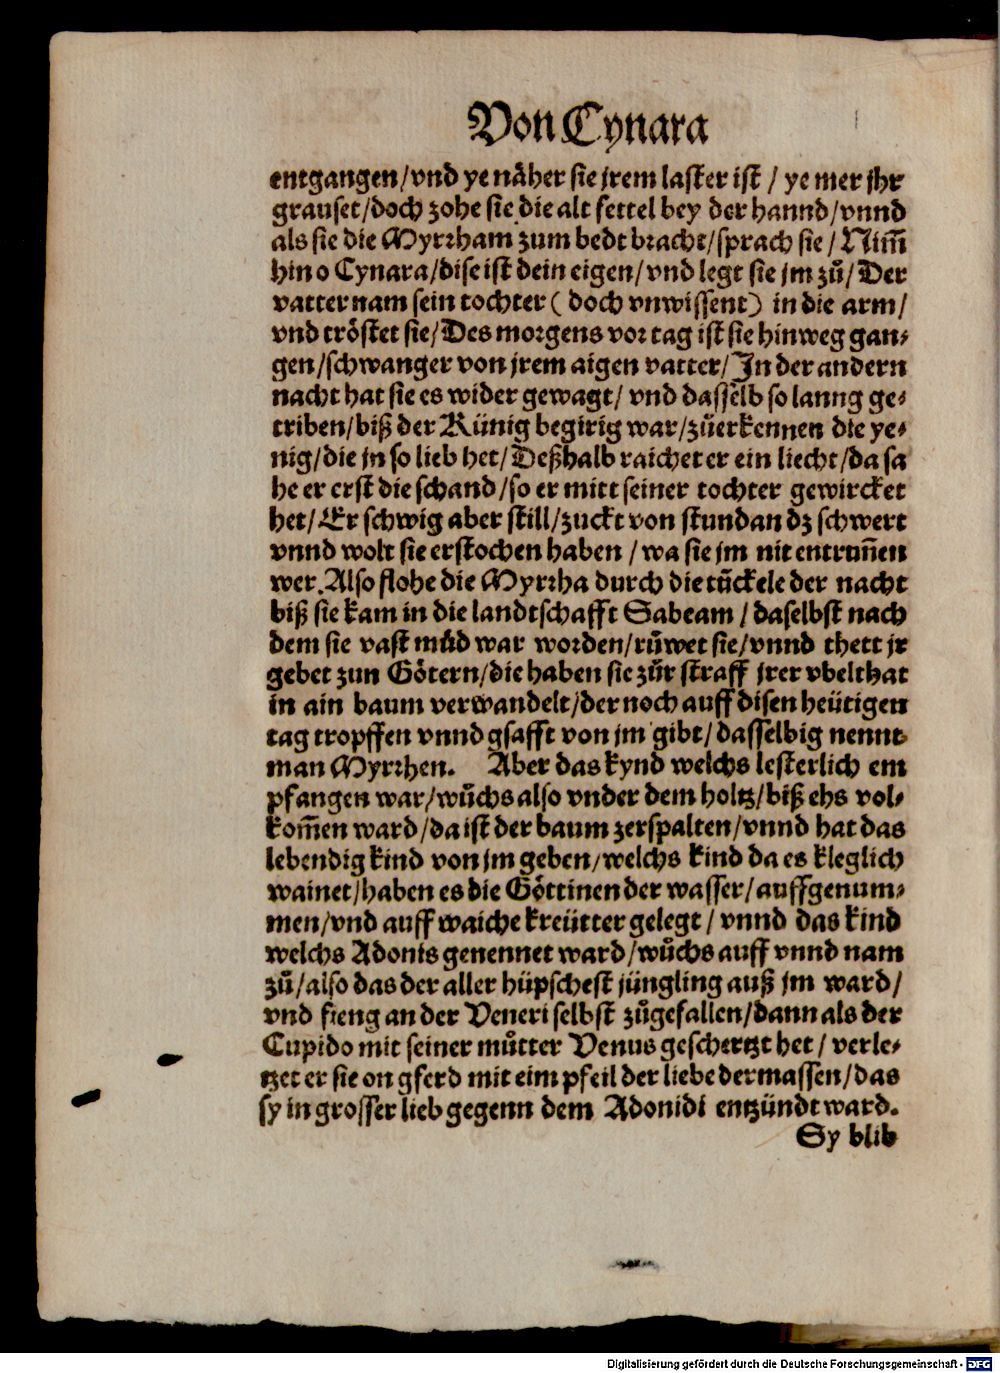 Von Cynara
entgangen/vnd ye näher sie jrem laster ist / ye mer jhr
grauset/doch zohe sie die alt fettel bey der hannd/vnnd
als sie die Myrrham zum bedt bracht/sprach sie / Nim̃
hin o Cynara/dise ist dein eigen/vnd legt sie jm zů/Der
vatter nam sein tochter ( doch vnwissent) in die arm/
vnd tröstet sie/Des morgens vor tag ist sie hinweg gan⸗
gen/schwanger von jrem aigen vatter/In der andern
nacht hat sie es wider gewagt/ vnd dasselb so lanng ge⸗
triben/biß der Künig begirig war/zůerkennen die ye⸗
nig/die jn so lieb het/Deßhalb raichet er ein liecht/da sa
he er erst die schand/so er mitt seiner tochter gewircket
het/Er schwig aber still/zuckt von stundan dz schwert
vnnd wolt sie erstochen haben /wa sie jm nit entrun̄en
wer.Also flohe die Myrrha durch die tůckele der nacht
biß sie kam in die landtschafft Sabeam / daselbst nach
dem sie vast můd war worden/růwet sie/vnnd thett jr
gebet zun Götern/die haben sie zůr straff jrer vbelthat
in ain baum verwandelt/der noch auff disen heütigen
tag tropffen vnnd gsafft von jm gibt/dasselbig nennt
man Myrrhen. Aber das kynd welchs lesterlich em
pfangen war/wůchs also vnder dem holtz/biß ehs vol⸗
kom̄en ward/da ist der baum zerspalten/vnnd hat das
lebendig kind von jm geben/welchs kind da es kleglich
wainet/haben es die Göttinen der wasser/auffgenum⸗
men/vnd auff waiche kreütter gelegt / vnnd das kind
welchs Adonis genennet ward/wůchs auff vnnd nam
zů/also das der aller hüpschest jüngling auß jm ward/
vnd fieng an der Veneri selbst zůgefallen/dann als der
Cupido mit seiner můtter Venus geschertzt het / verle⸗
tzet er sie on gferd mit eim pfeil der liebe dermassen/das
sy in grosser lieb gegenn dem Adonidi entzündt ward.
Sy blib
Digitalisierung gefördert durch die Deutsche Forschungsgemeinschaft - DFG